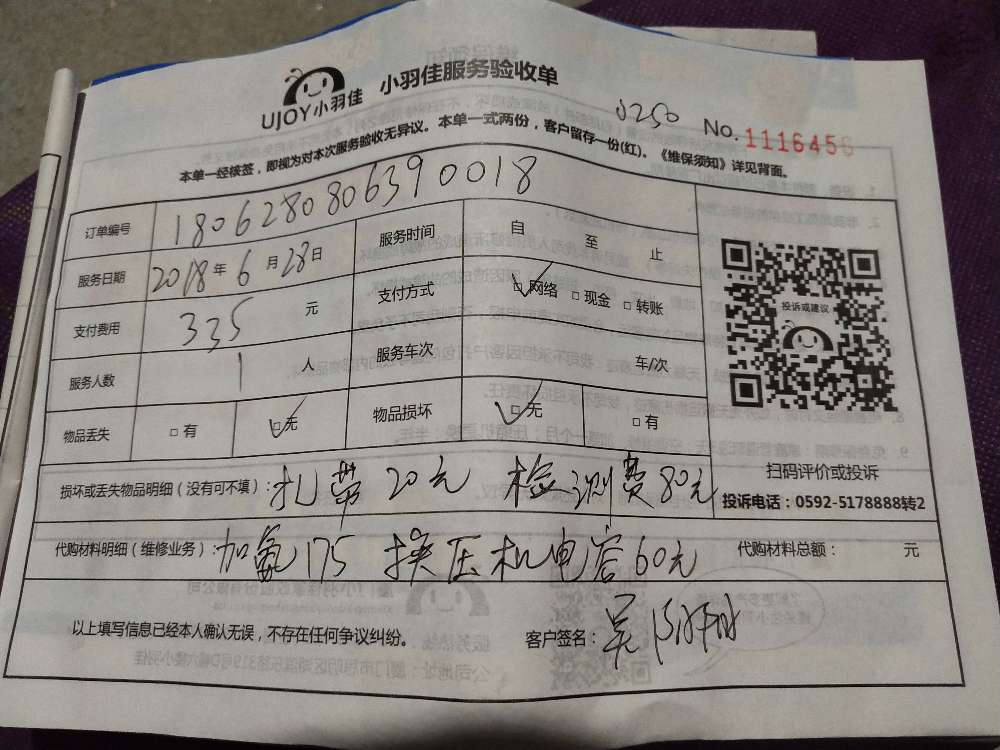 UJOY小羽佳 小羽佳服务验收单
J250 No.1116456
本单一经核签，即视为对本次服务验收无异议。本单一式两份，客户留存一份(红)。《维保须知》详见背面。
订单编号 1806280806390018
服务日期 2018年6月28日 服务时间 自 至 止
支付费用 335 元 支付方式 ☑网络 □现金 □转账
服务人数 1 人 服务车次 车/次
物品丢失 □有 ☑无 物品损坏 ☑无 □有
投诉或建议
扫码评价或投诉
投诉电话：0592-5178888转2
损坏或丢失物品明细（没有可不填）： 费20元 检测费80元
代购材料明细（维修业务）：加氟175 换压机电容60元 代购材料总额： 元
以上填写信息已经本人确认无误，不存在任何争议纠纷。 客户签名：吴